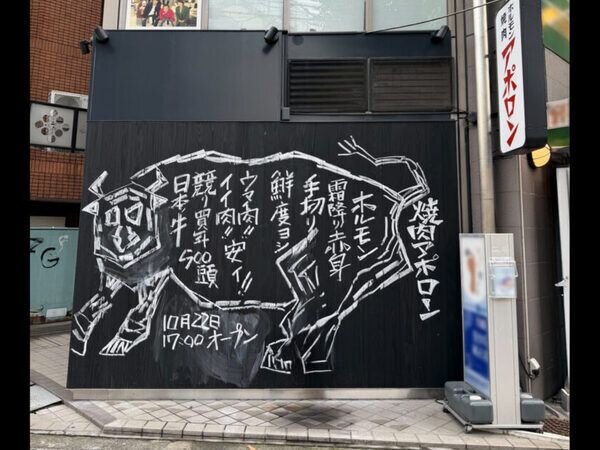 ホルモン
焼肉
アポロン
焼肉アポローン
ホルモン
霜降り赤身
手切り
鮮度ヨシ
ウマ肉!!
イイ肉!! 安イ!!
競り買年500頭
日本牛
10月22日
17:00オープン